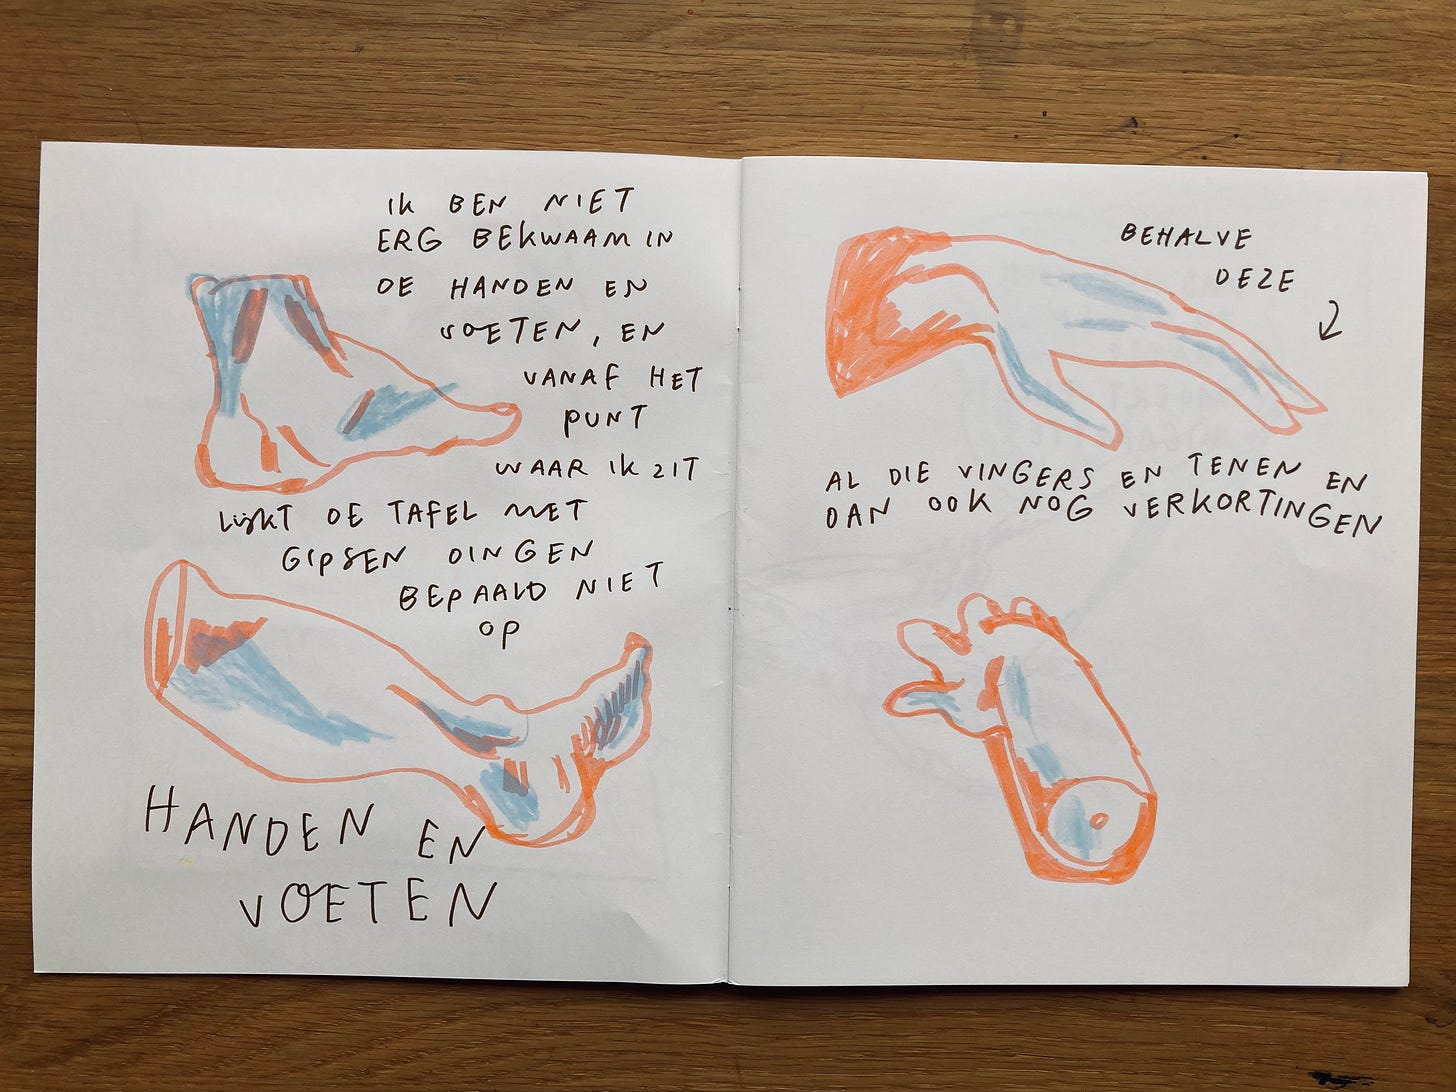 IK BEN NIET
ERG BEKWAAM IN
DE HANDEN EN
VOETEN, EN
VANAF HET
PUNT
WAAR IK ZIT
LIJKT DE TAFEL MET
GIPSEN DINGEN
BEPAALD NIET
OP
HANDEN EN
VOETEN
BEHALVE
DEZE
AL DIE VINGERS EN TENEN EN
DAN OOK NOG VERKORTINGEN